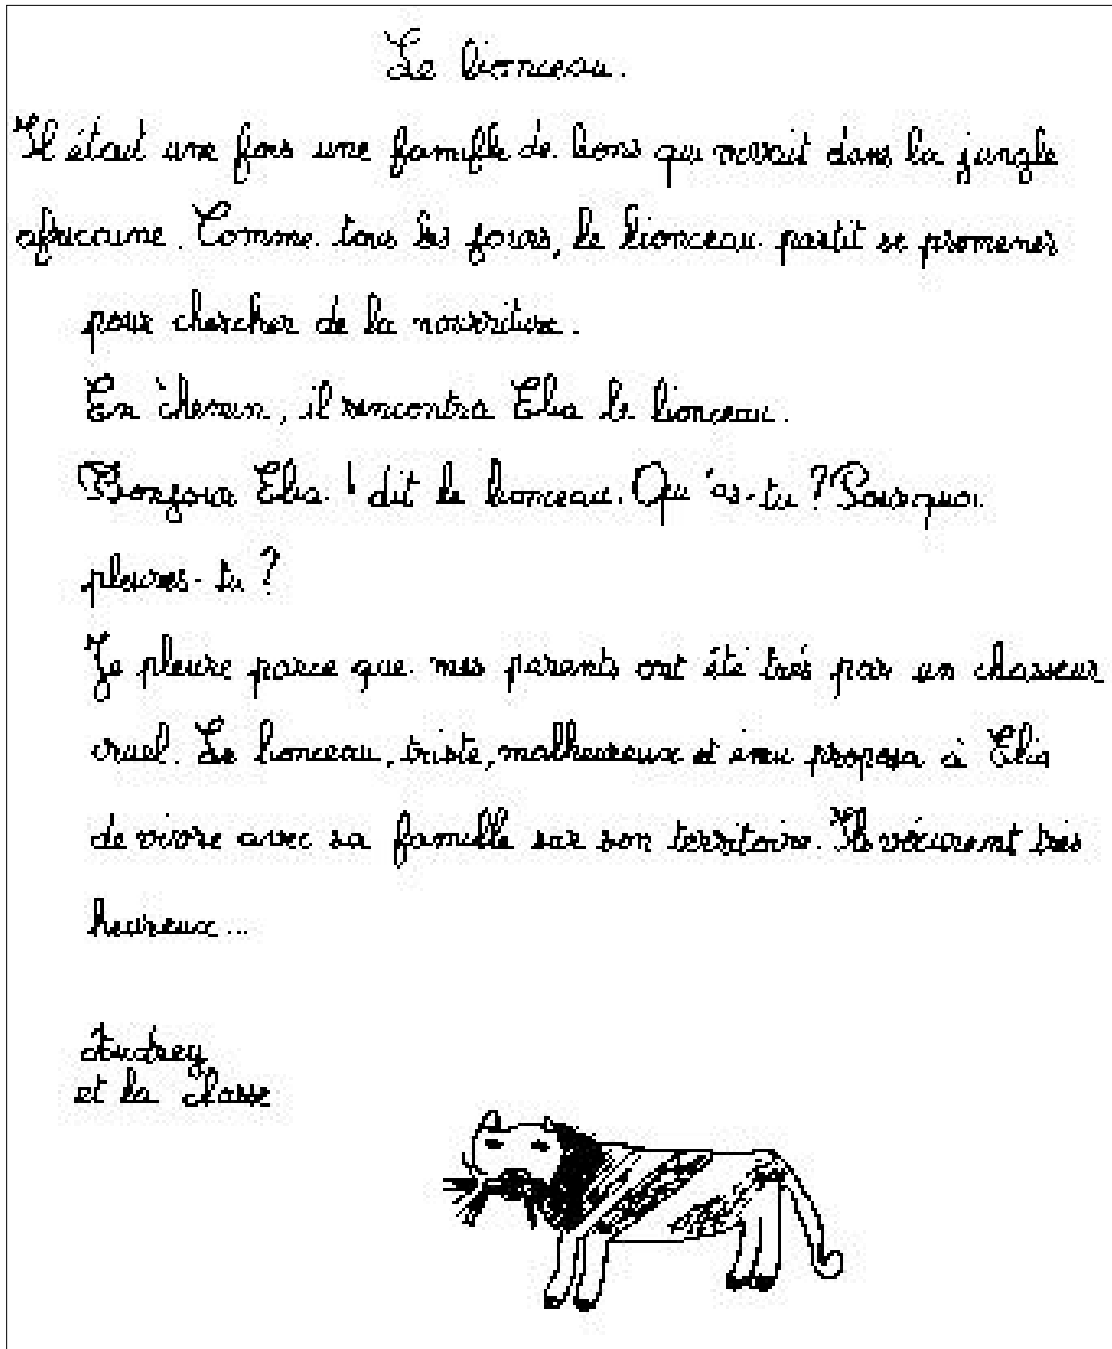 Le lionceau.
Il était une fois une famille de lions qui vivait dans la jungle
africaine. Comme tous les jours, le lionceau partit se promener
pour chercher de la nourriture.
En chemin, il rencontra Elia le lionceau.
Bonjour Elia ! dit le lionceau. Qu'as-tu ? Pourquoi
pleures-tu ?
Je pleure parce que mes parents ont été tués par un chasseur
cruel. Le lionceau, triste, malheureux et ému proposa à Elia
de vivre avec sa famille sur son territoire. Ils vécurent très
heureux...
Audrey
et la classe